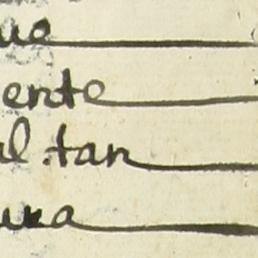 uo
ente
al tan
ura